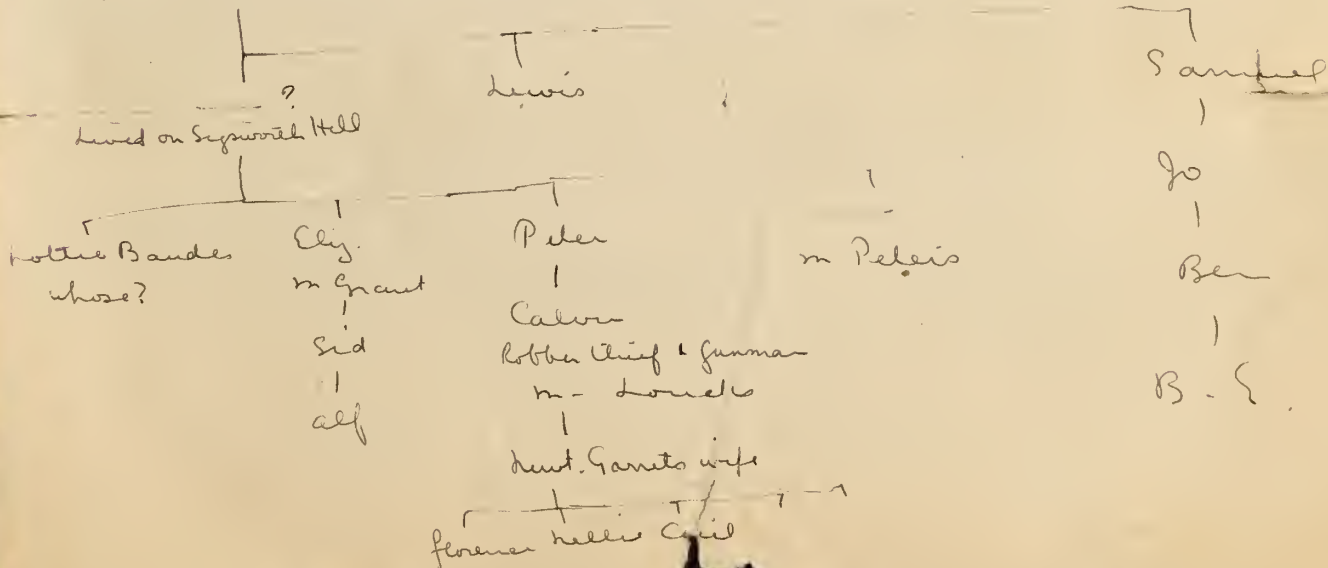 ?
Lewis
Samuel
Lived on Sigsworth Hill
Lottie Baudes
whose?
Eliz.
m Grant
Sid
Alf
Peter
Calvin
Robber Thief & Gunman
m - Loucks
Newt. Garrets wife
Florence Nellie Cecil
m Peleis
Jo
Ben
B. E.